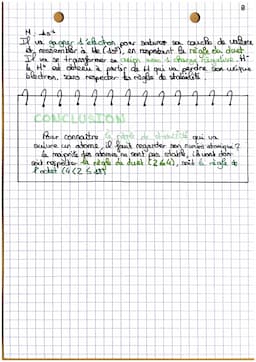 8
H : 1s¹
Il va gagner 1 électron pour saturer sa couche de valence
et ressembler à He (1s²), en respectant la règle du duet
Il va se transformer en anion avec 1 charge négative. H⁻
le H⁺ est obtenu à partir de H qui va perdre son unique
électron, sans respecter les règles de stabilité
CONCLUSION
Pour connaître la règle de stabilité qui va
suivre un atome, il faut regarder son numéro atomique ?
la majorité des atomes ne sont pas stable, ils vont donc
soit respecter la règle du duet (Z ≤ 4), soit la règle de
l'octet (4 < Z ≤ 18)